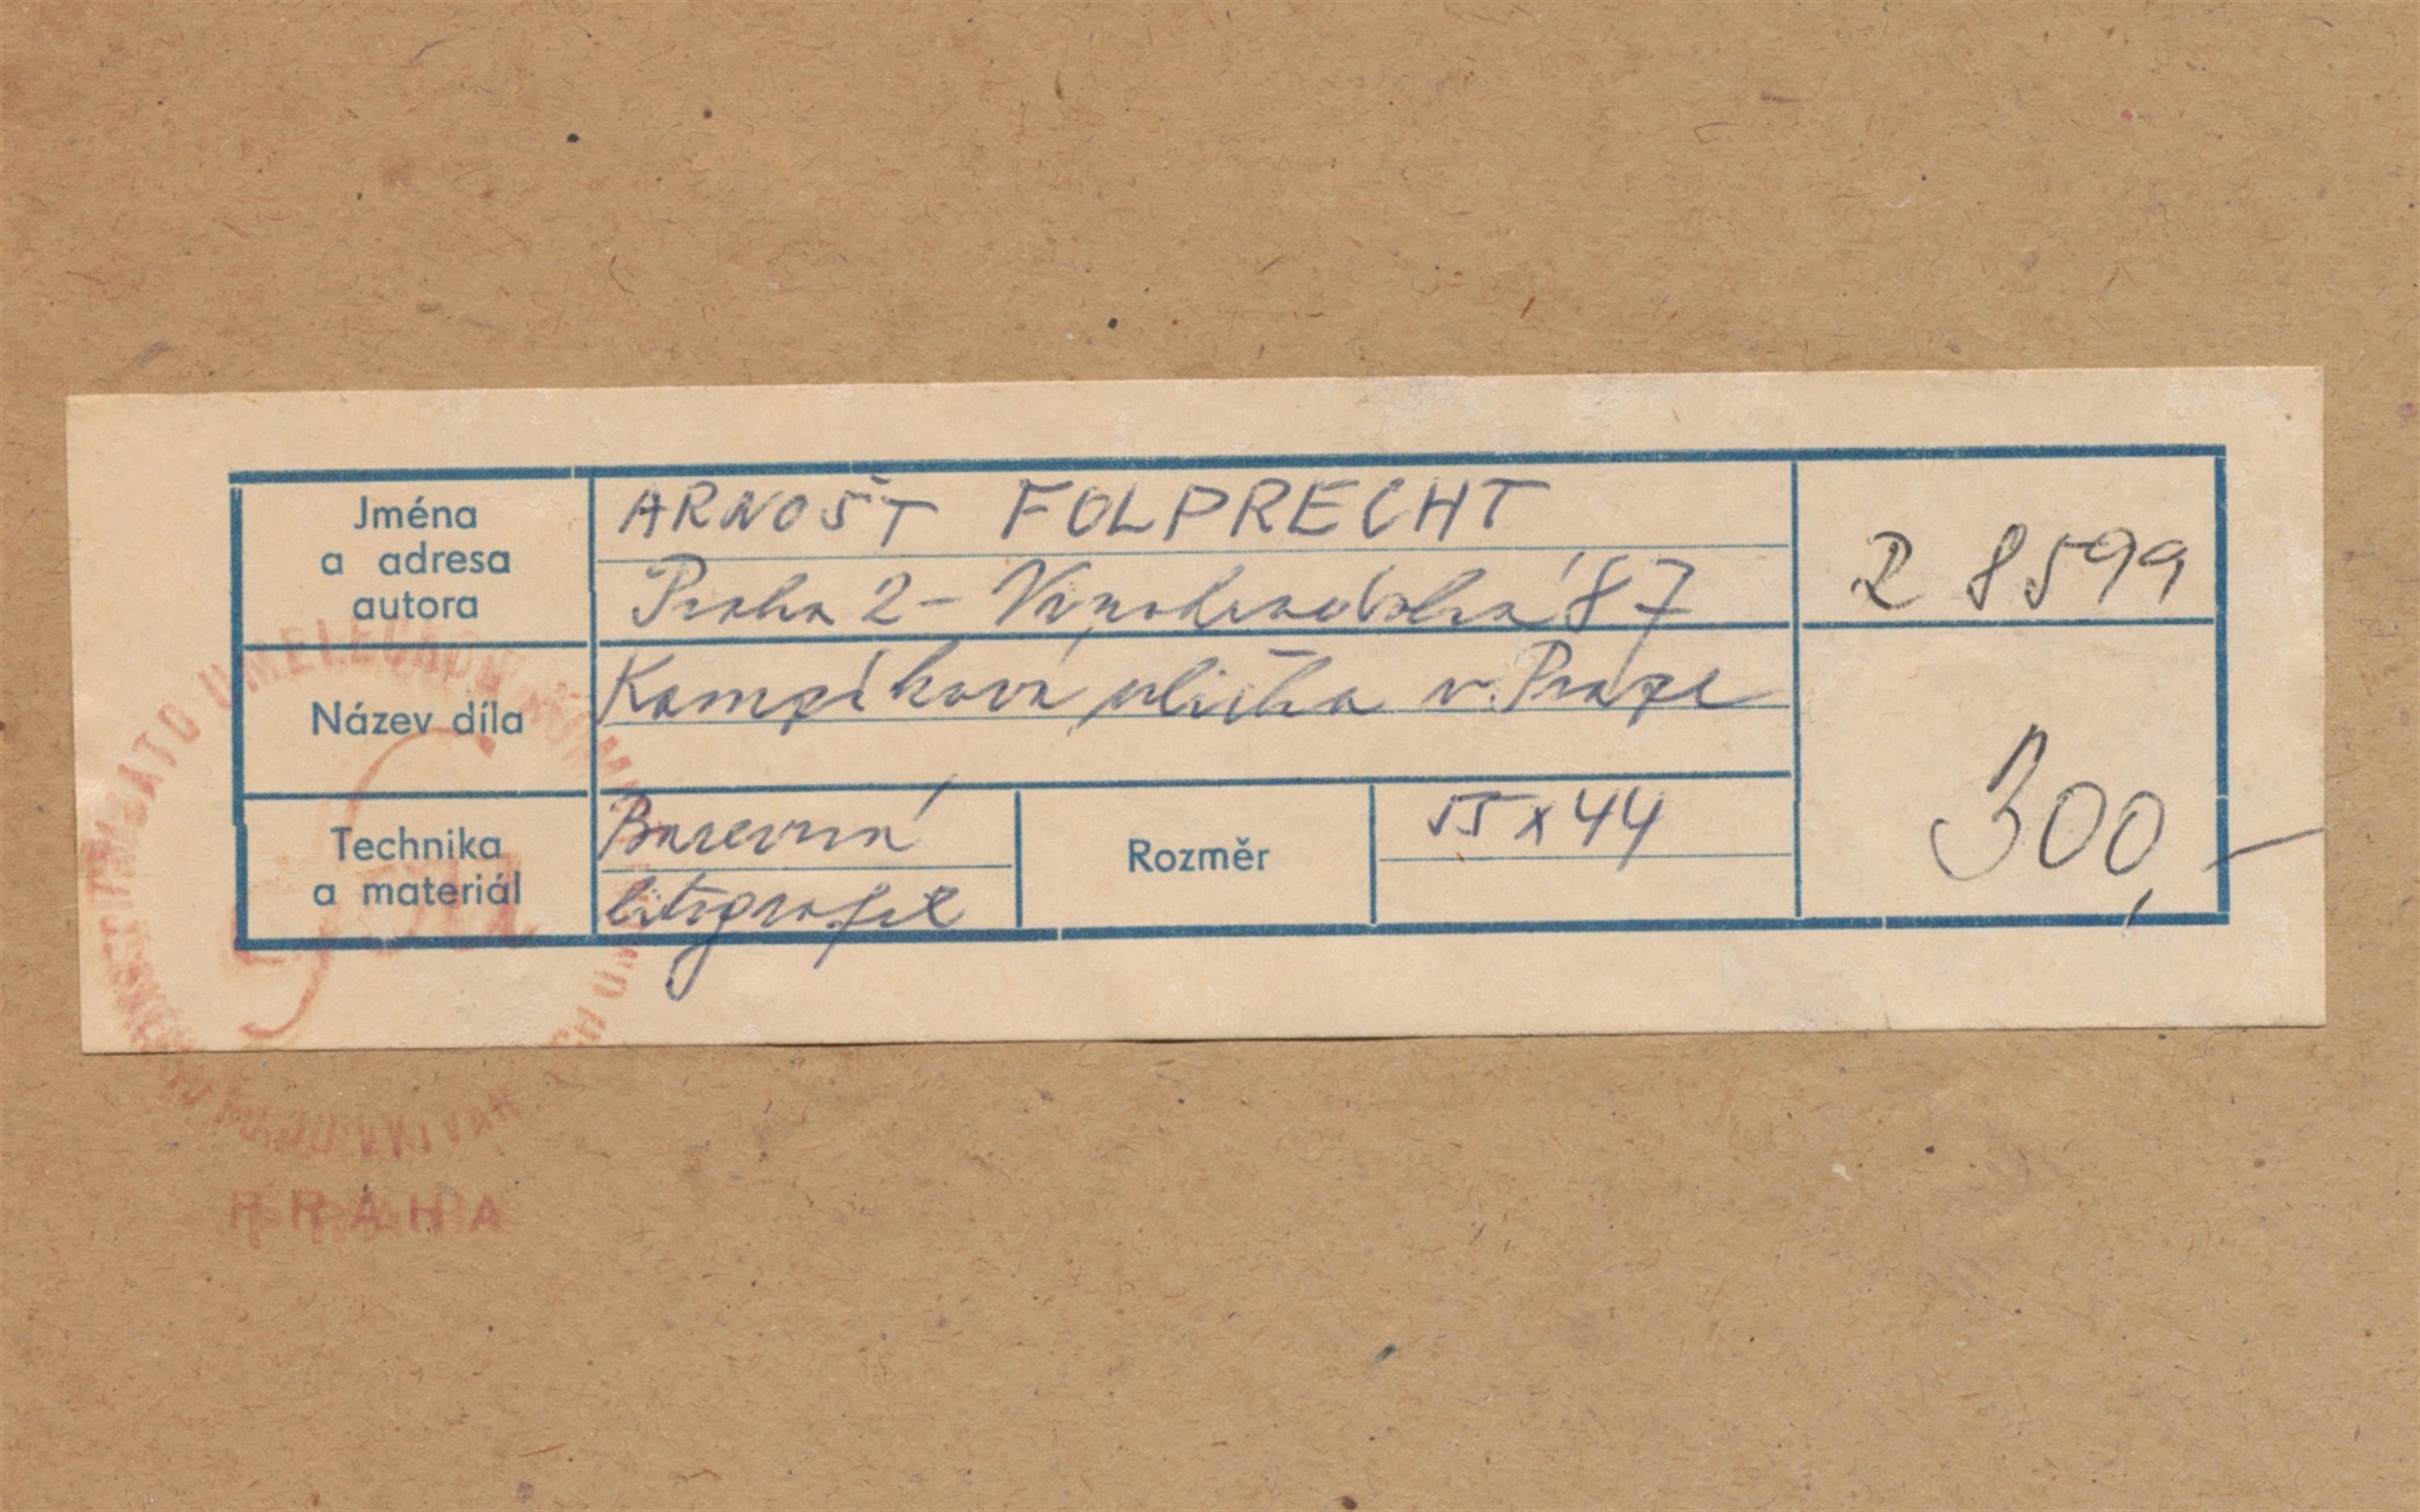 Jména
a adresa
autora
ARNOŠT FOLPRECHT
Praha 2 - Vinohradská 87
R 8599
Název díla
ulička v Praze
300,-
Technika
a materiál
Barevná
litografie
Rozměr
55 x 44
PRAHA